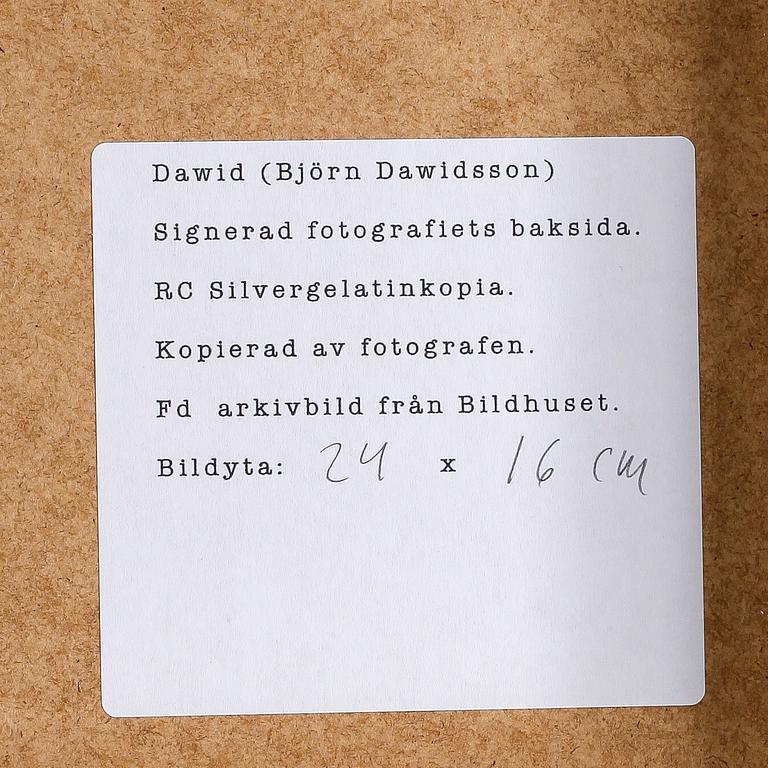 Dawid (Björn Dawidsson)
Signerad fotografiets baksida.
RC Silvergelatinkopia.
Kopierad av fotografen.
Fd arkivbild från Bildhuset.
Bildyta: 24 x 16 cm